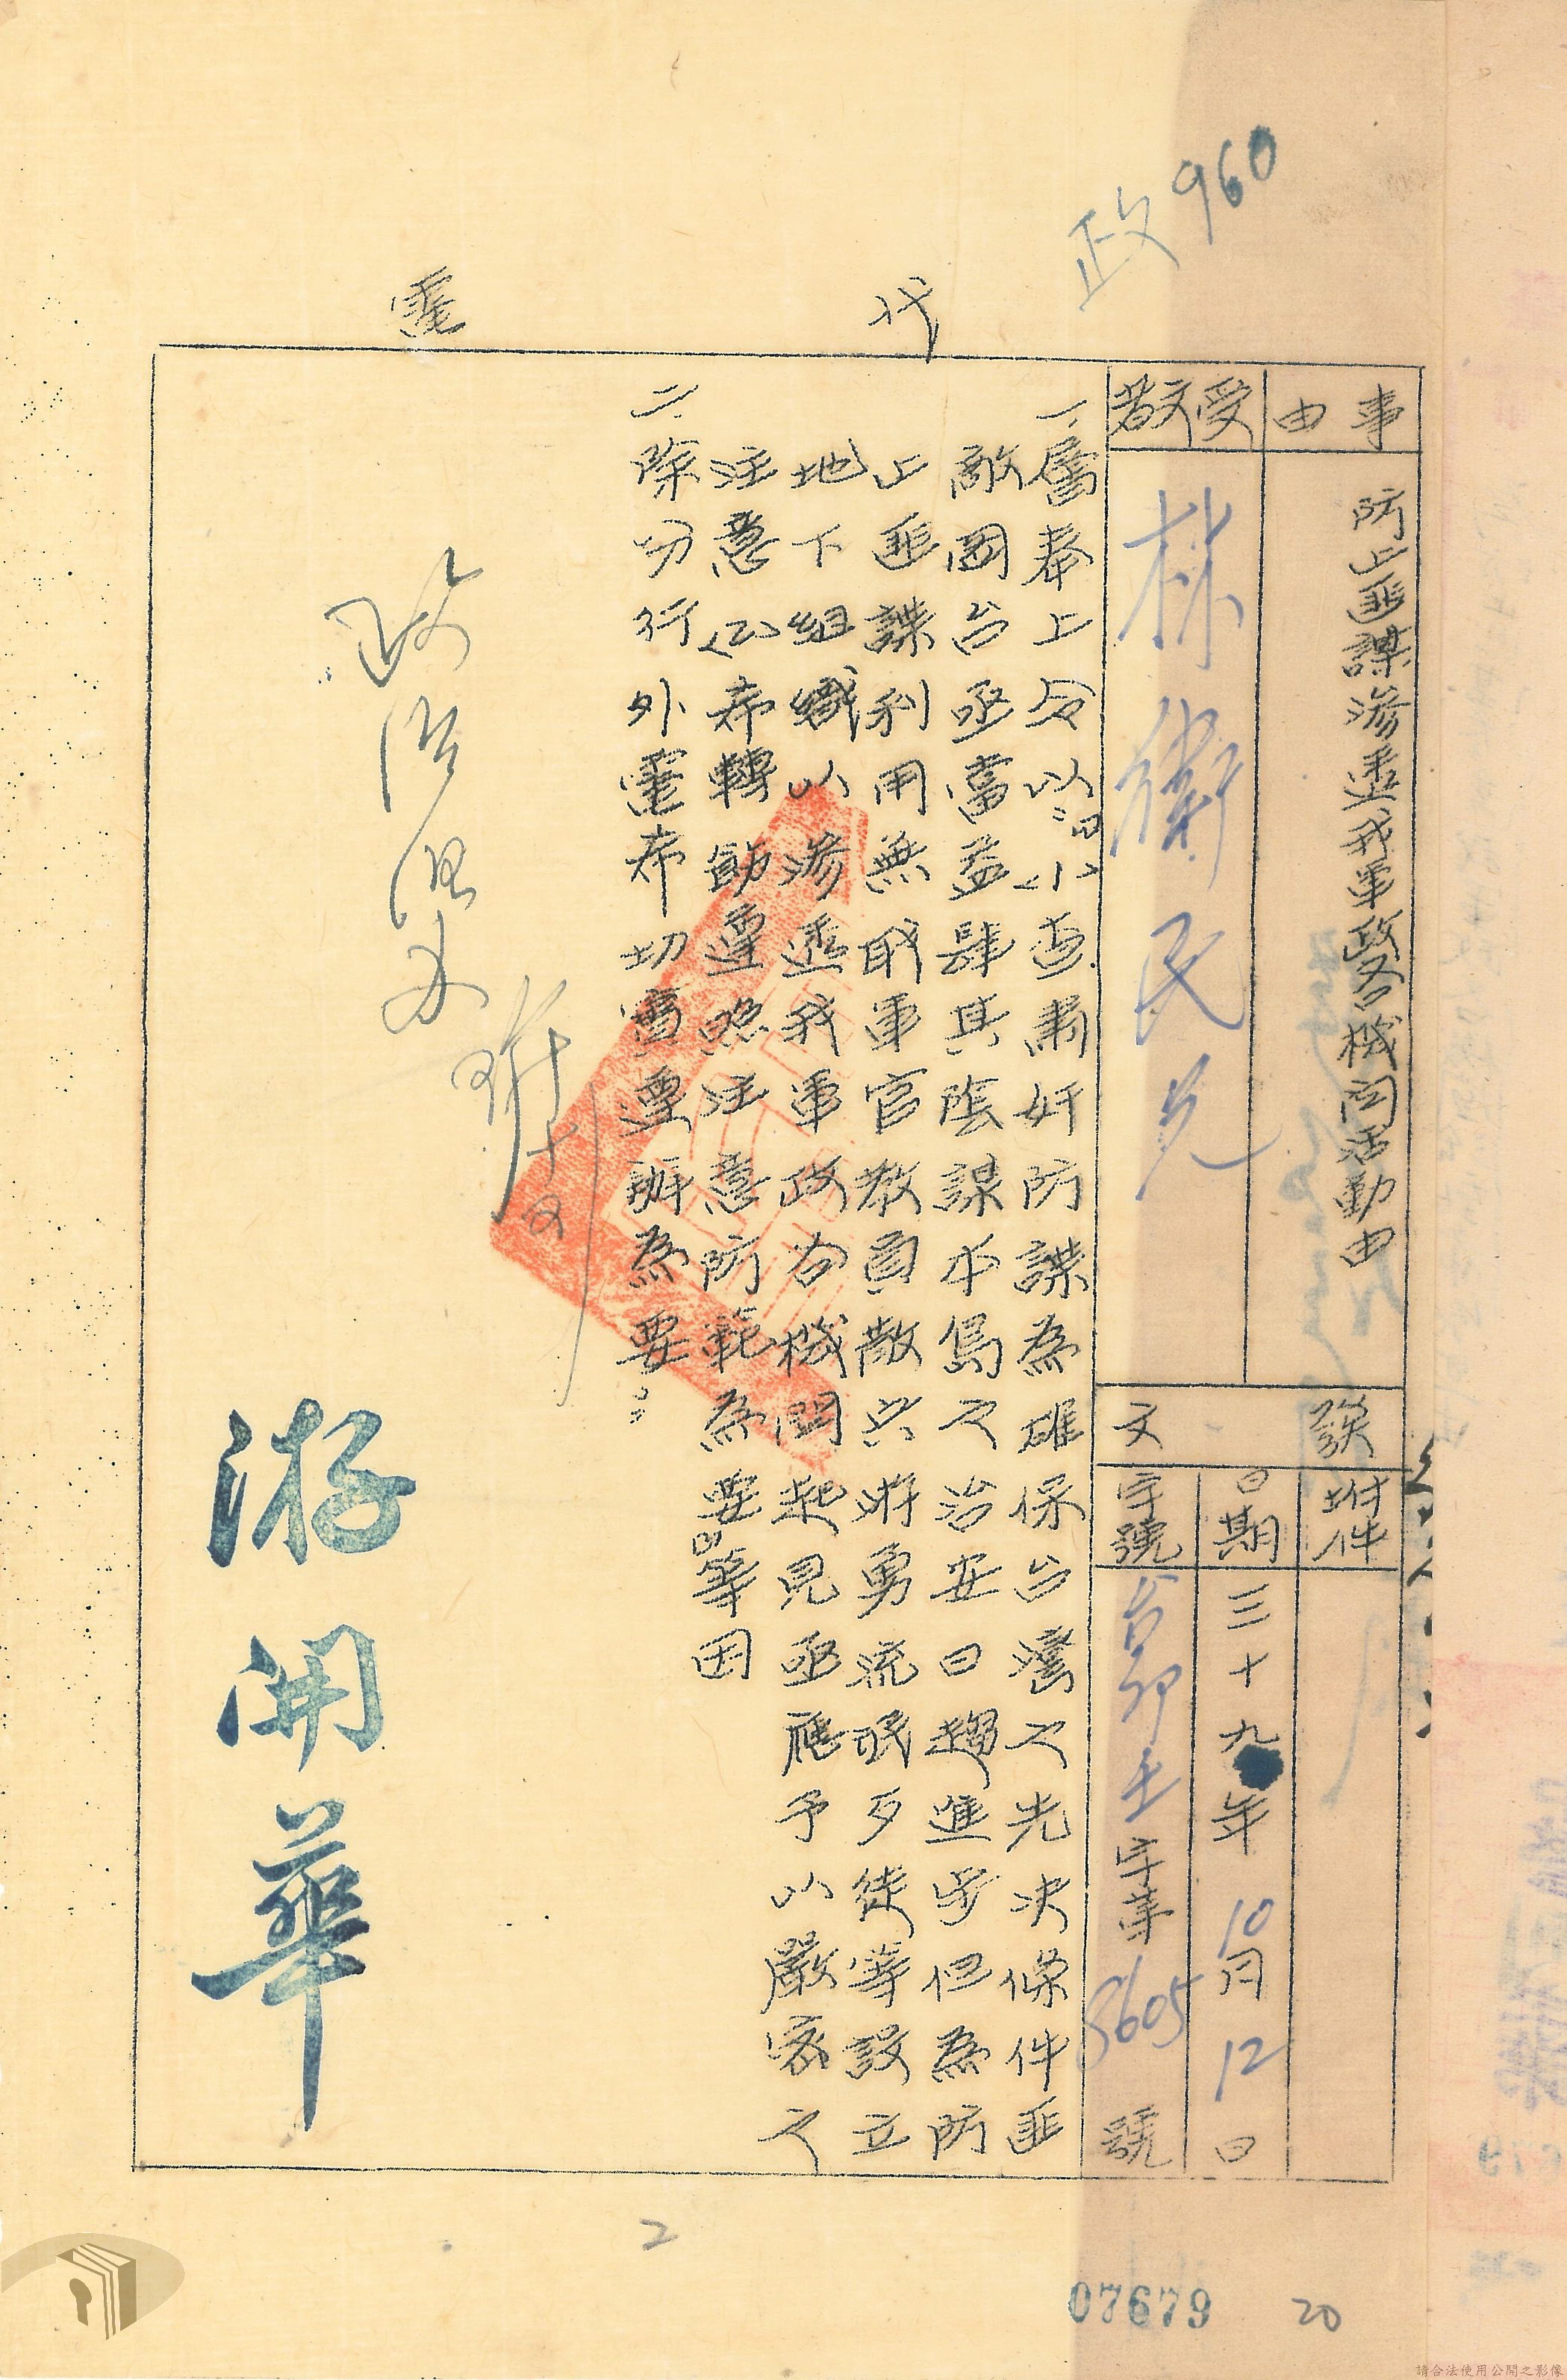 政960
代電
事由
防止匪諜滲透我軍政各機関活動由
受文者
林衛民兄
發文
附件
日期
三十九年10月12日
字號
字第5605號
一、層奉上令以「㈠查肅奸防諜為確保台灣之先決條件匪
敵困台亟當益肆其陰謀本島之治安日趨進步但為防
止匪諜利用無耻軍官教員散兵游勇流氓歹徒等設立
地下組織以滲透我軍政各機関起見亟應予以嚴密之
注意㈡希轉飭遵照注意防範為要」等因
二、除分行外電希切實遵辦為要
游開華
2
07679
20
請合法使用公開之影像